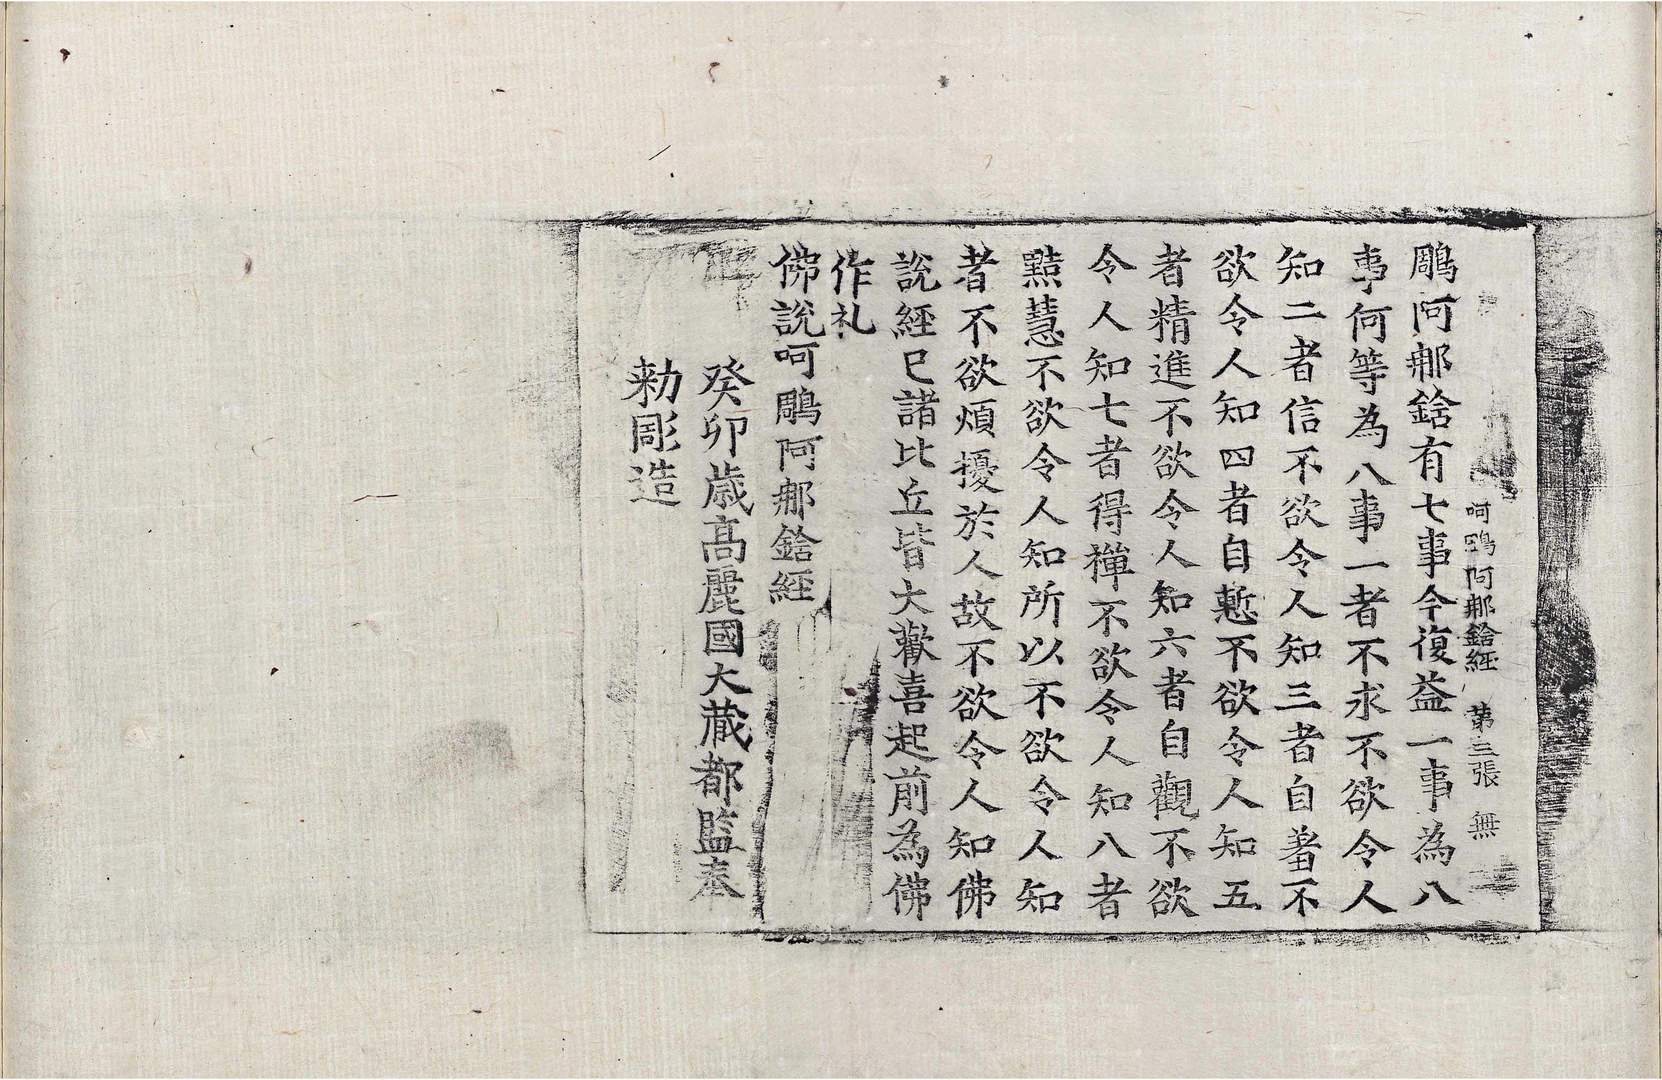 呵鵰阿𨙻鋡經 第三張 無
鵰阿𨙻鋡有七事今復益一事為八
事何等為八事一者不求不欲令人
知二者信不欲令人知三者自羞不
欲令人知四者自慙不欲令人知五
者精進不欲令人知六者自觀不欲
令人知七者得禪不欲令人知八者
黠慧不欲令人知所以不欲令人知
者不欲煩擾於人故不欲令人知佛
說經已諸比丘皆大歡喜起前為佛
作礼
佛說呵鵰阿𨙻鋡經
癸卯歲高麗國大藏都監奉
勑彫造